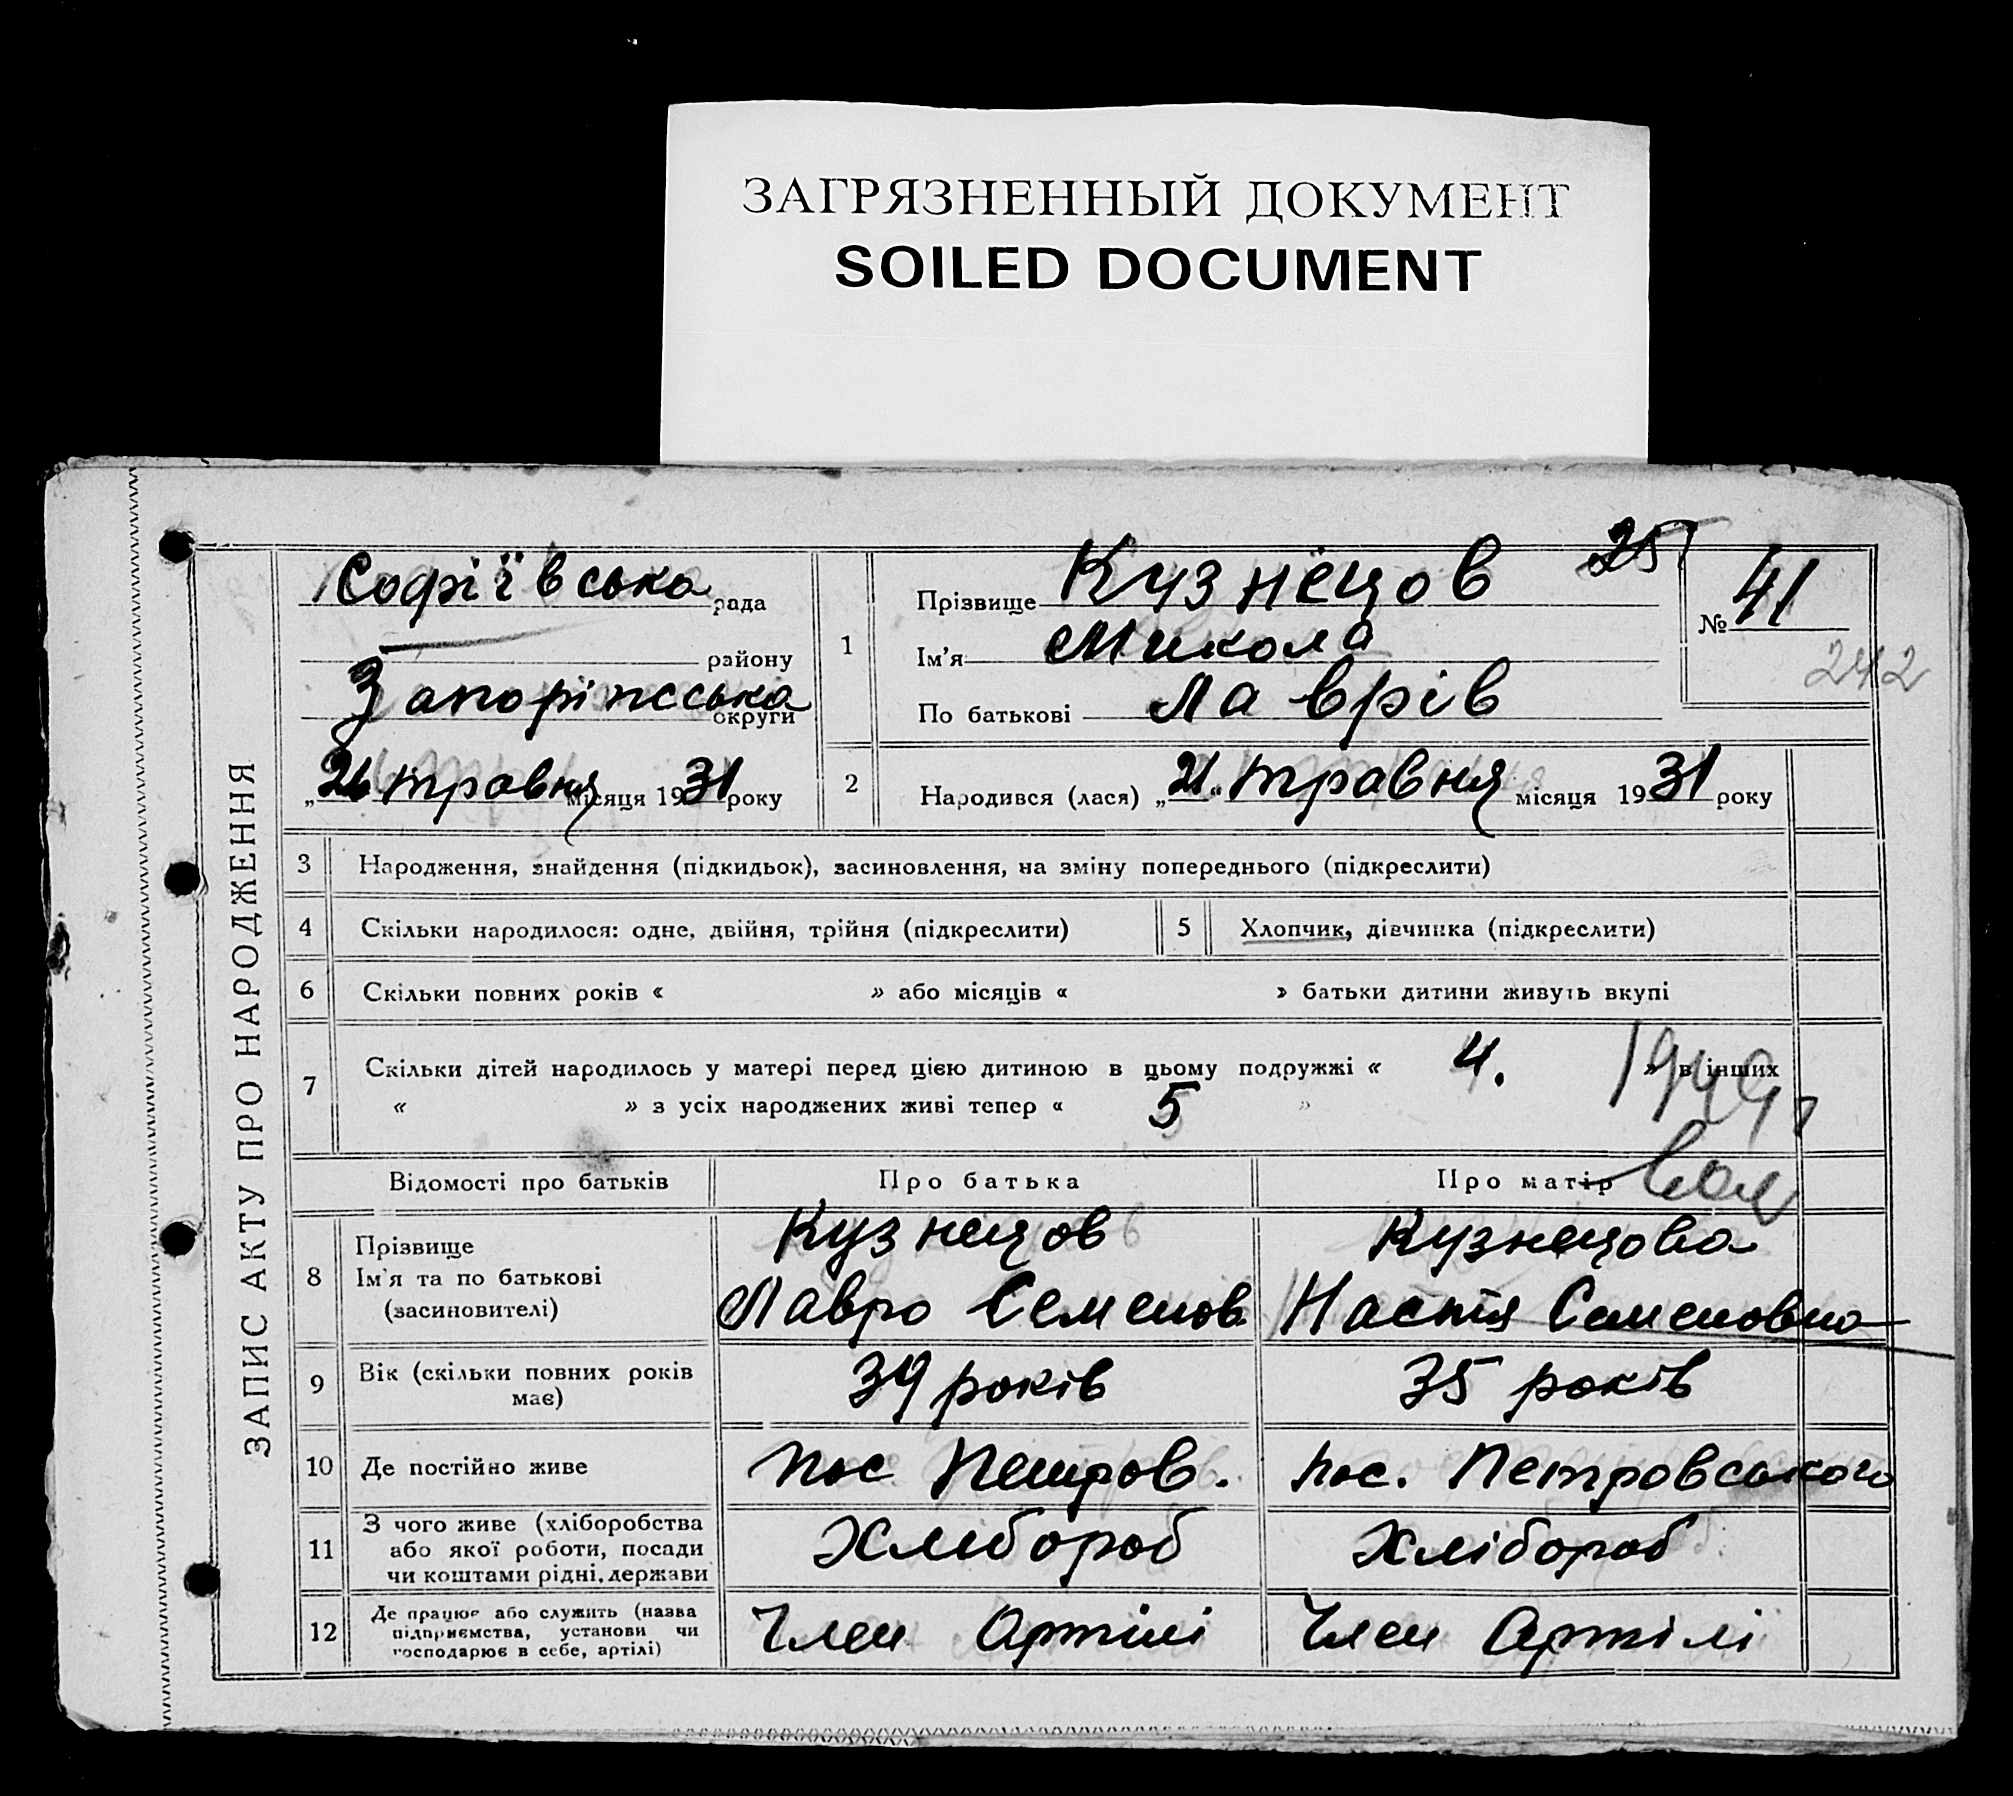 ЗАГРЯЗНЕННЫЙ ДОКУМЕНТ
SOILED DOCUMENT
ЗАПИС АКТУ ПРО НАРОДЖЕННЯ
Софіївська рада
району
Запоріжська округи
„26 травня місяця 1931 року
1
Прізвище Кузнецов
25
Ім'я Микола
По батькові Лаврів
№ 41
242
2 Народився (лася) „21“ травня місяця 1931 року
3 Народження, знайдення (підкидьок), засиновлення, на зміну попереднього (підкреслити)
4 Скільки народилося: одне, двійня, трійня (підкреслити) 5 Хлопчик, дівчинка (підкреслити)
6 Скільки повних років « » або місяців « » батьки дитини живуть вкупі
7 Скільки дітей народилось у матері перед цією дитиною в цьому подружжі « 4. » в інших
« » з усіх народжених живі тепер « 5 »
Відомості про батьків Про батька Про матір
8 Прізвище Кузнецов Кузнецова
Ім'я та по батькові Лавро Семенов. Настя Семеновна
(засиновителі)
9 Вік (скільки повних років має) 39 років 35 років
10 Де постійно живе пос Петров. пос. Петровського
11 З чого живе (хліборобства Хлібороб Хлібороб
або якої роботи, посади
чи коштами рідні, держави
12 Де працює або служить (назва Член Артілі Член Артілі
підприємства, установи чи
господарює в себе, артілі)